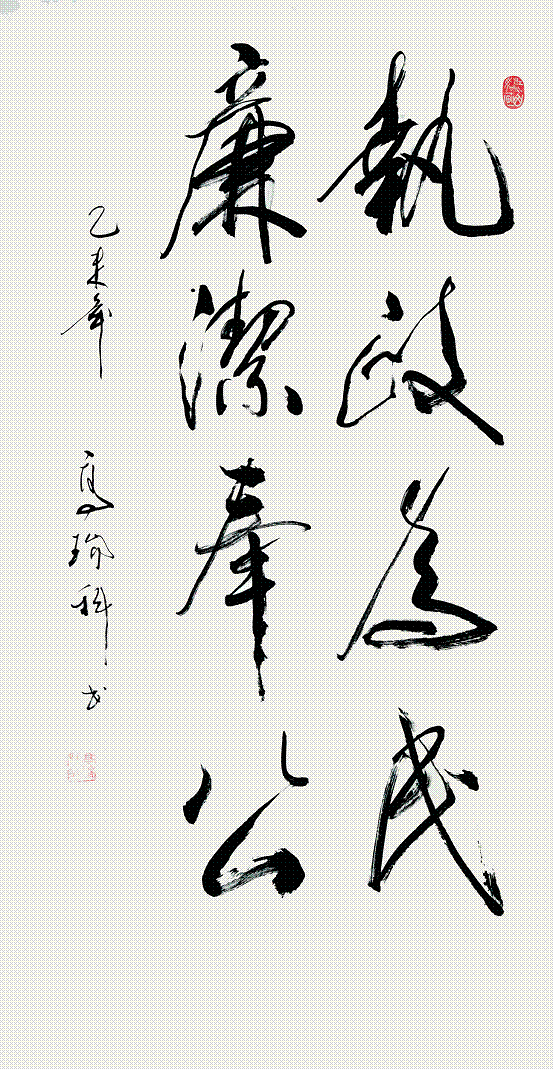 執政為民
廉潔奉公
乙未年 高瑜科书